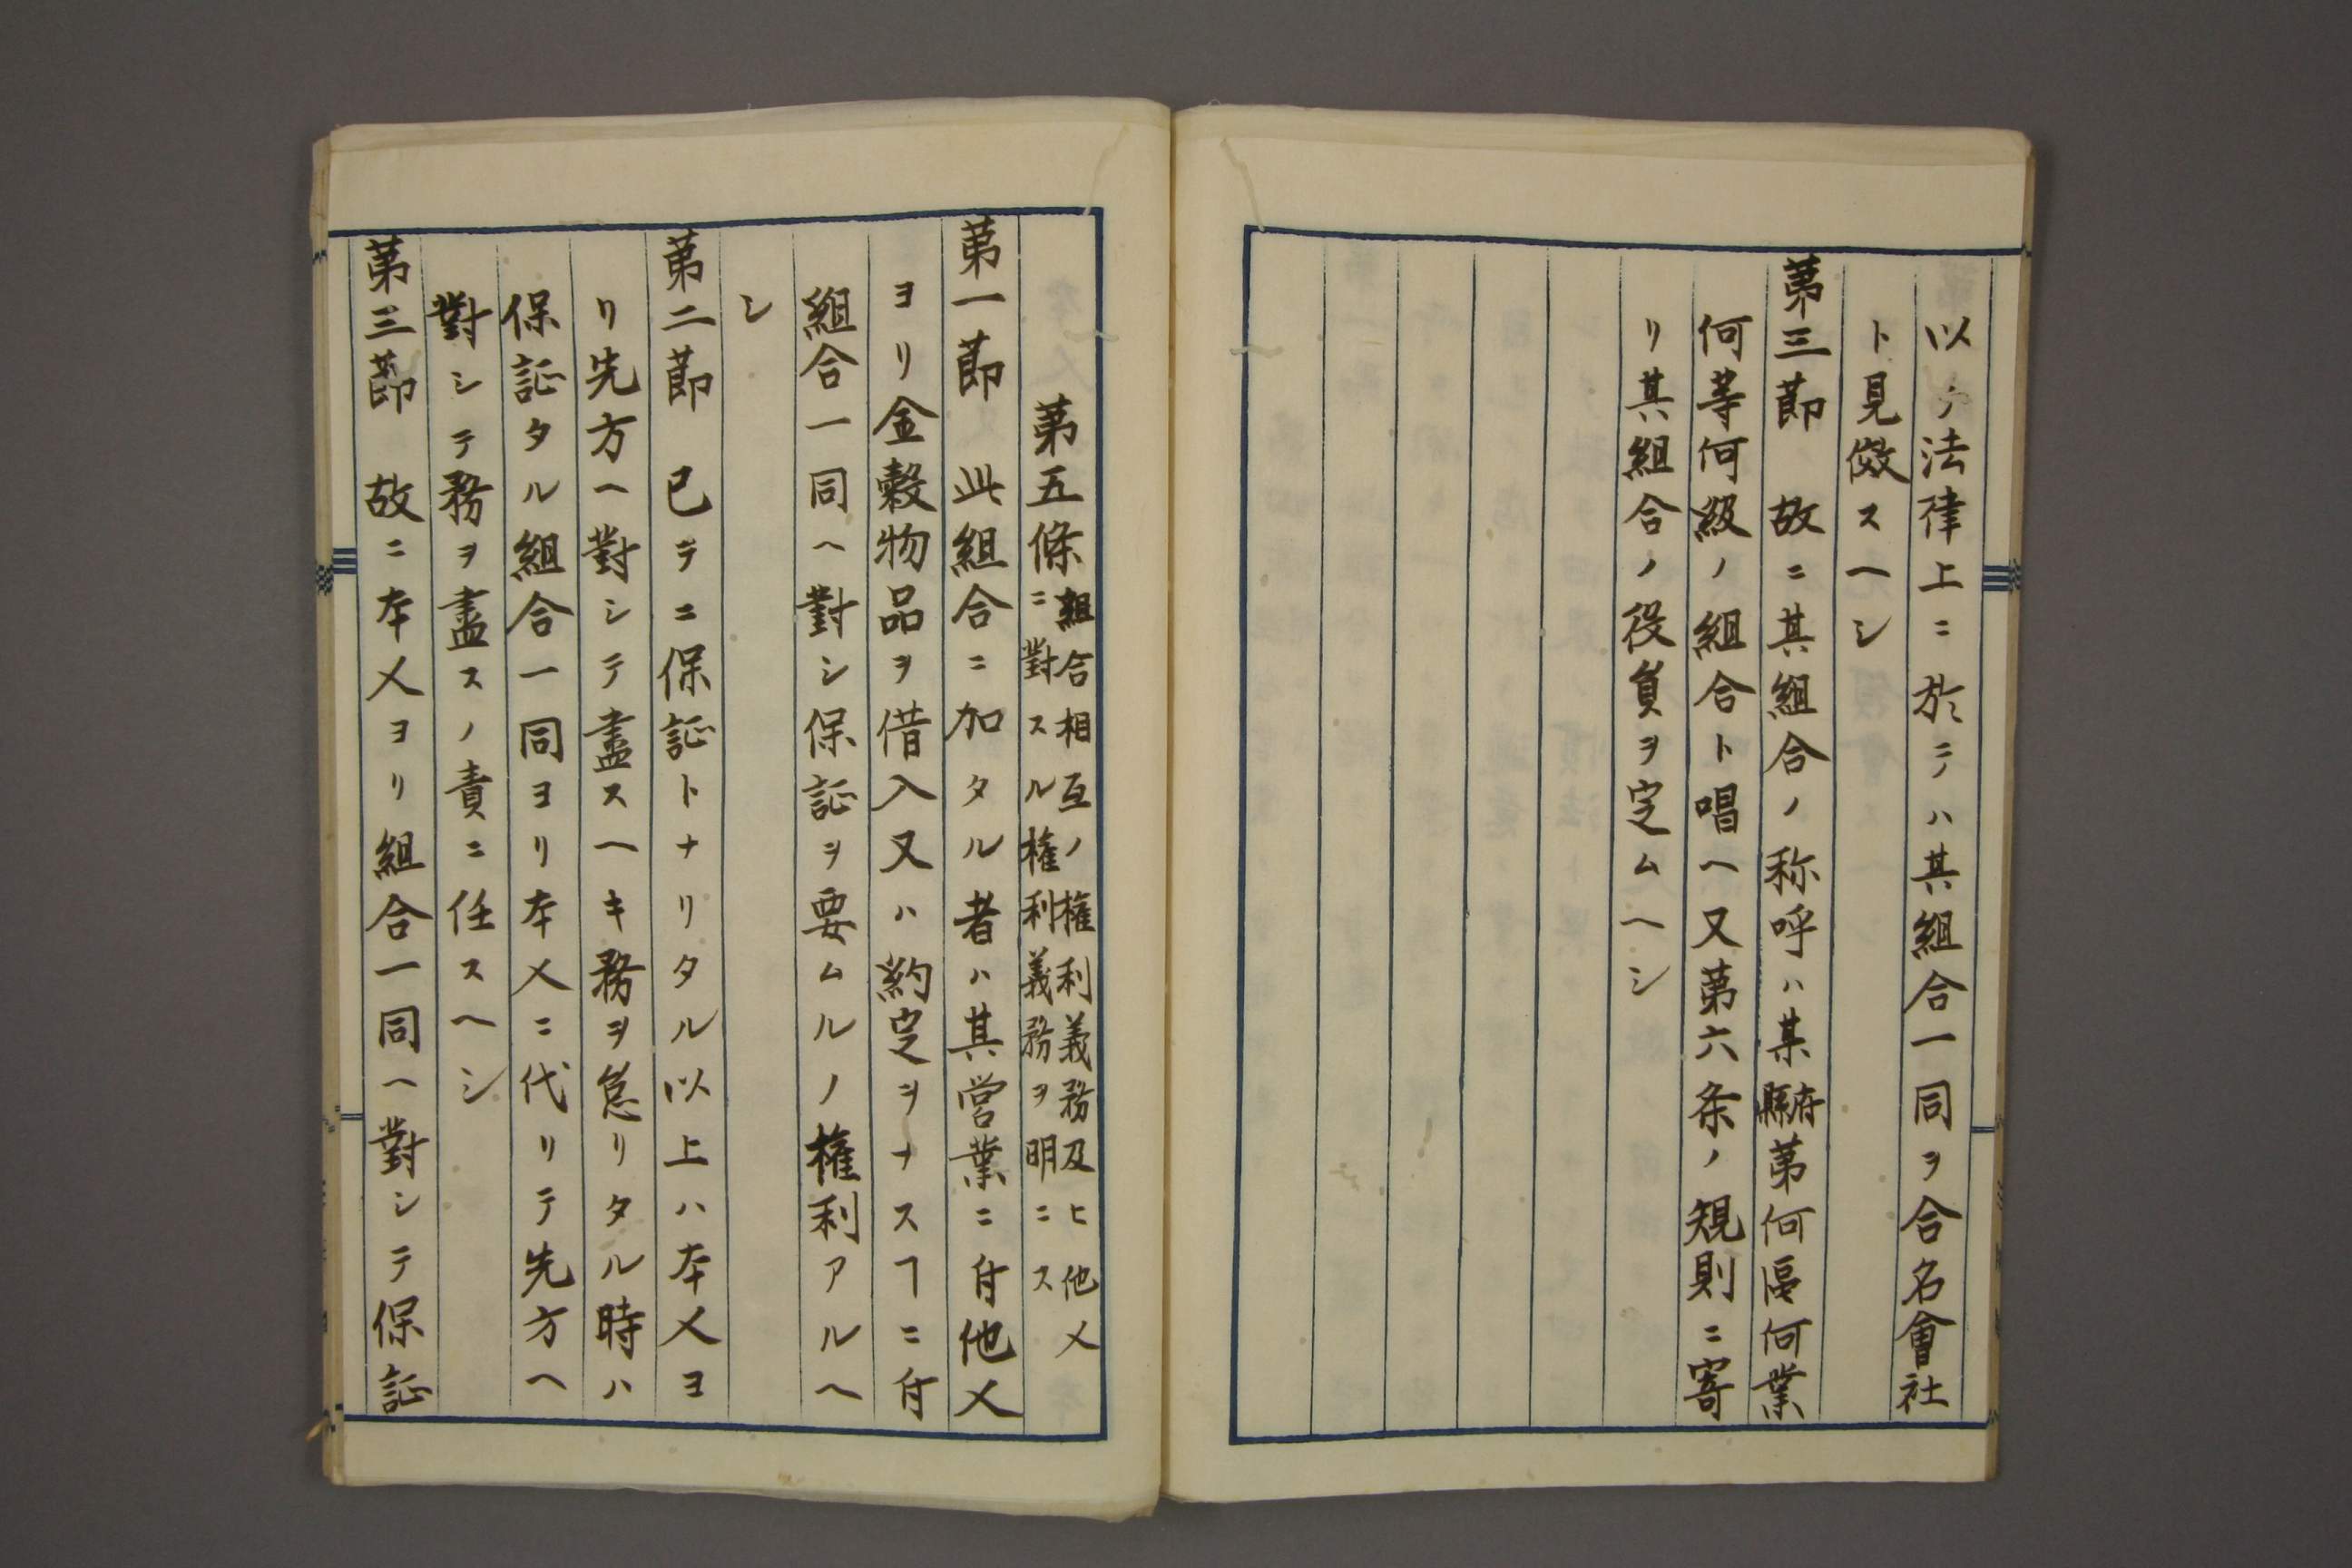 以テ法律上ニ於テハ其組合一同ヲ合名會社
ト見傚スヘシ
第三節　故ニ其組合ノ称呼ハ某府縣第何區何業
何等何級ノ組合ト唱ヘ又第六条ノ規則ニ寄
リ其組合ノ役員ヲ定ムヘシ
第五條
組合相互ノ権利義務及ヒ他人
ニ對スル権利義務ヲ明ニス
第一節　此組合ニ加タル者ハ其営業ニ付他人
ヨリ金穀物品ヲ借入又ハ約定ヲナスヿニ付
組合一同ヘ對シ保証ヲ要ムルノ権利アルヘ
シ
第二節　已テニ保証トナリタル以上ハ本人ヨ
リ先方ヘ對シテ盡スヘキ務ヲ怠リタル時ハ
保証タル組合一同ヨリ本人ニ代リテ先方ヘ
對シテ務ヲ盡スノ責ニ任スヘシ
第三節　故ニ本人ヨリ組合一同ヘ對シテ保証